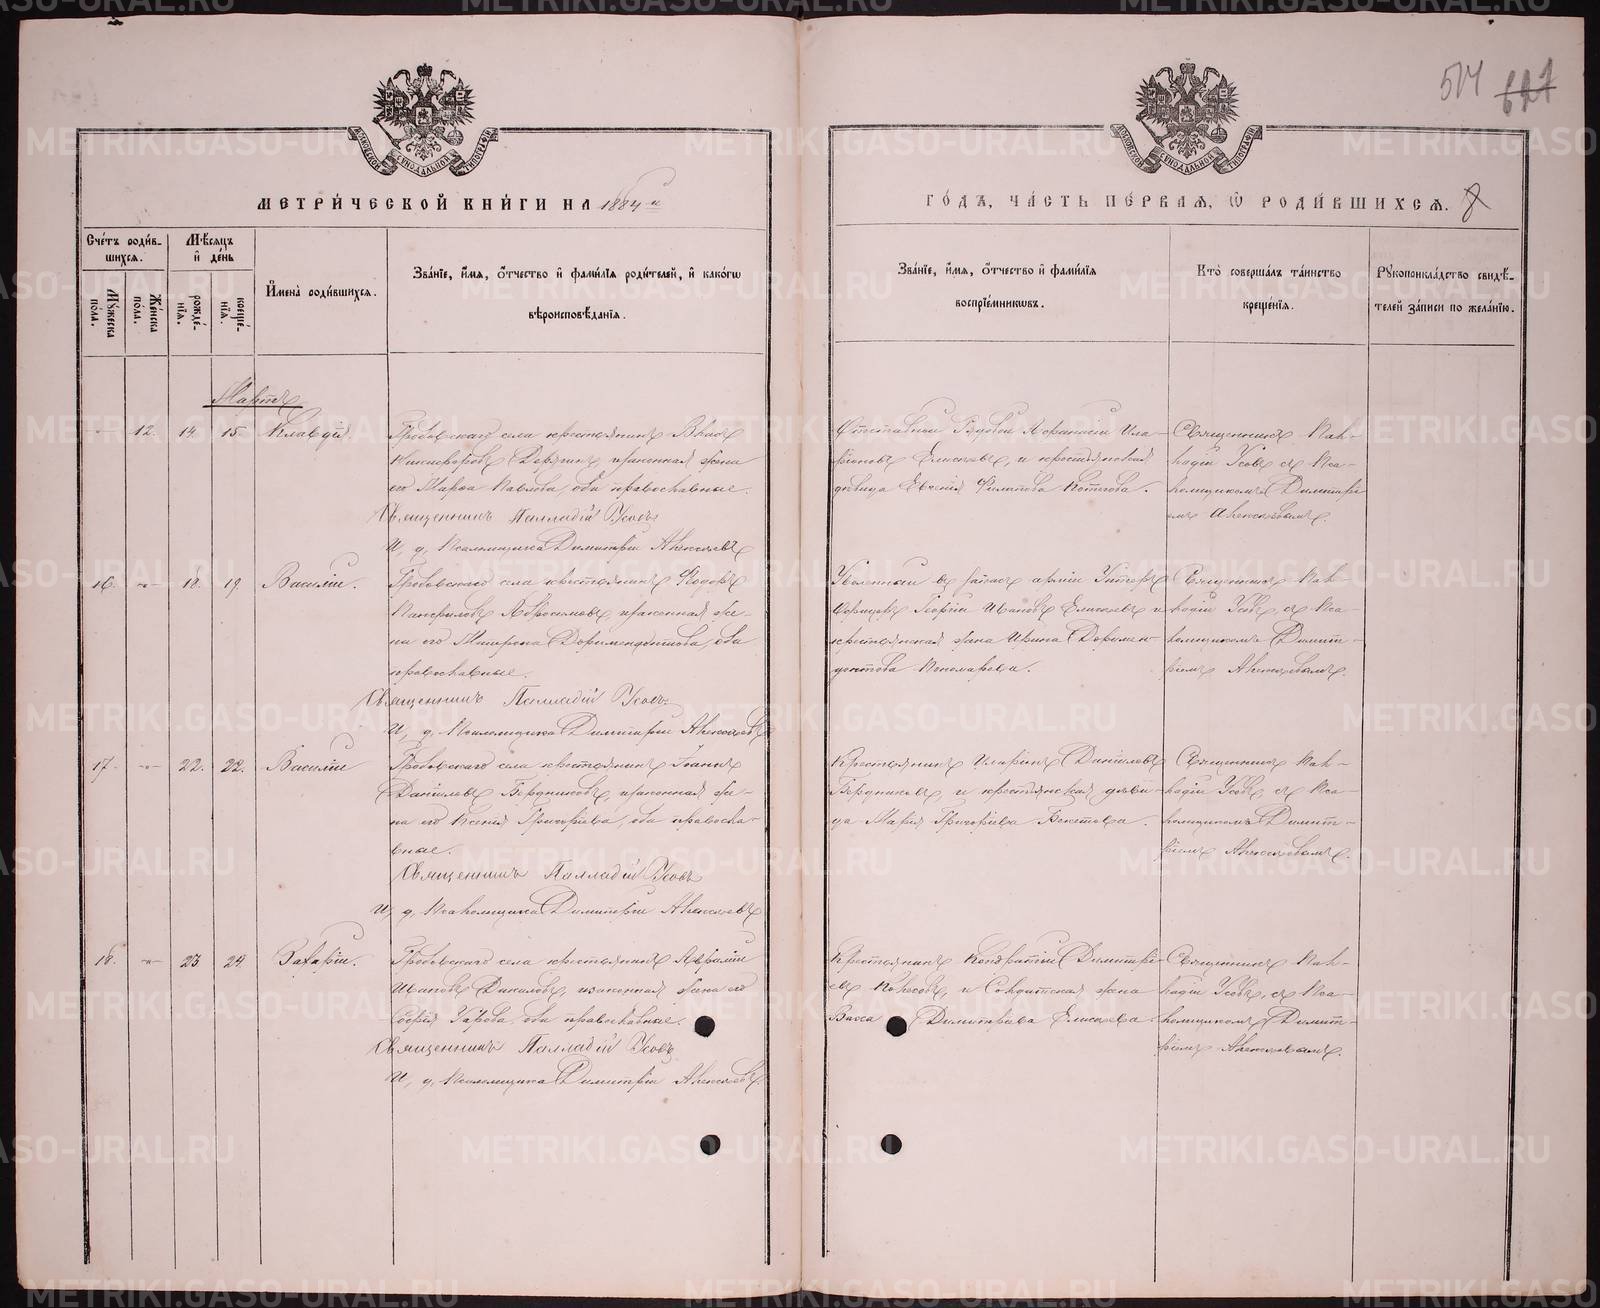 514 627
МЕТРИЧЕСКОЙ КНИГИ НА 1884 й
ГОДЪ, ЧАСТЬ ПЕРВАЯ, Ѡ РОДИВШИХСЯ. 8
Счетъ родившихся.
Мужеска пола.
Женска пола.
Мѣсяцъ и день
рожденія.
крещенія.
Имена родившихся.
Званіе, имя, отчество и фамилія родителей, и какогѡ
вѣроисповѣданія.
Званіе, имя, отчество и фамилія
воспріемниковъ.
Кто совершалъ таинство
крещенія.
Рукоприкладство свидѣ-
телей записи по желанію.
Мартъ
12. 14. 15. Клавдія.
Гробовскаго села крестьянинъ
Никифоровъ законная жена
его Марѳа Павлова, оба православные.
Священникъ Палладій Усовъ
И. д. Псаломщика Димитрій Алексѣевъ
Отставной Рядовой Аѳанасій Ила-
ріоновъ Елисѣевъ, и крестьянская
дѣвица Евгенія Филипова
Священникъ Пал-
ладій Усовъ съ Пса-
ломщикомъ Димитрі-
емъ Алексѣевымъ.
16. -"- 18. 19. Василій.
Гробовскаго села крестьянинъ Ѳедоръ
Панфиловъ Абросимовъ, законная же-
на его Матрона Доримедонтова, оба
православные.
Священникъ Палладій Усовъ
И. д. Псаломщика Димитрій Алексѣевъ
Уволенный въ запасъ арміи Унтеръ
Офицеръ Георгій Ивановъ Елисѣевъ и
крестьянская жена Ирина Доримен-
донтова Пономарева.
Священникъ Пал-
ладій Усовъ, съ Пса-
ломщикомъ Димит-
ріемъ Алексѣевымъ.
17. -"- 22. 22. Василій
Гробовскаго села крестьянинъ Іоаннъ
Даніиловъ Бердниковъ, законная же-
на его Ксенія Григоріева, оба правосла-
вные.
Священникъ Палладій Усовъ
И. д. Псаломщика Димитрій Алексѣевъ
Крестьянинъ Иларіонъ Даніиловъ
Бердниковъ, и крестьянская дѣви-
ца Марія Григоріева Бекетова.
Священникъ Пал-
ладій Усовъ, съ Пса-
ломщикомъ Димит-
ріемъ Алексѣевымъ.
18. -"- 23 24. Захарій.
Гробовскаго села крестьянинъ
Ивановъ законная жена его
Софія Уарова, оба православные.
Священникъ Палладій Усовъ
И. д. Псаломщика Димитрій Алексѣевъ
Крестьянинъ Кондратій Димитрі-
евъ и Солдатская жена
Васса Димитріева Елисѣева.
Священникъ Пал-
ладій Усовъ, съ Пса-
ломщикомъ Димит-
ріемъ Алексѣевымъ.
METRIKI.GASO-URAL.RU